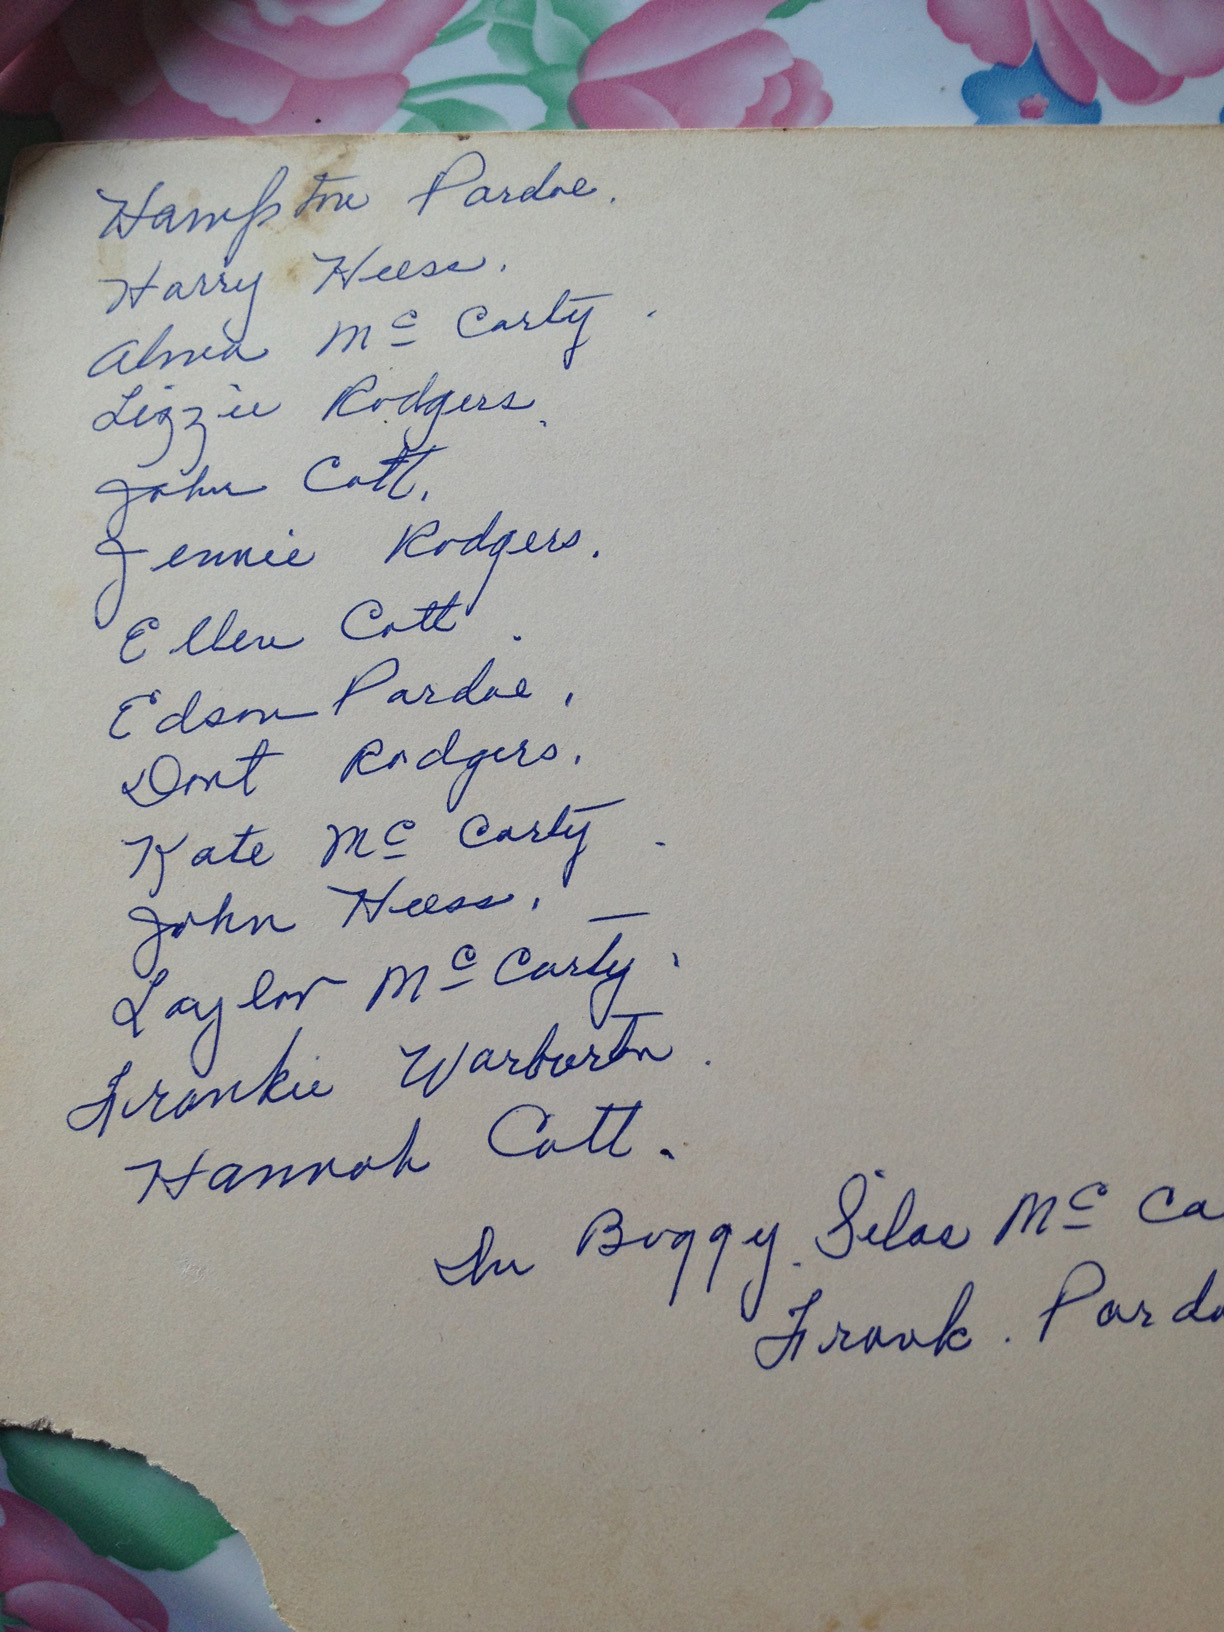 Hampton Pardoe.
Harry Heess.
Alma Mc Carty.
Lizzie Rodgers.
John Cott.
Jennie Rodgers.
Ellen Cott.
Edson Pardoe.
Dont Rodgers.
Kate Mc Carty.
John Heess.
Taylor Mc Carty.
Frankie Warburton.
Hannah Cott.
In Buggy. Silas Mc Ca
Frank. Pardo